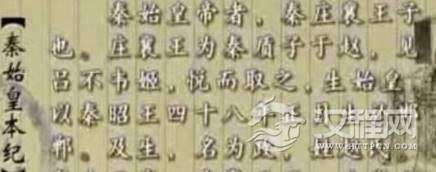 【秦始皇本纪
秦始皇帝者，秦庄襄王子
也。庄襄王为秦质子于赵，见
吕不韦姬，悦而取之，生始皇
以秦昭王四十八年正月
郸。及生，名为政，姓赵氏
文程网